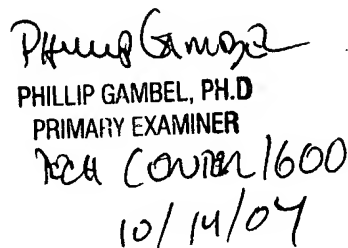 Phillip Gambel
PHILLIP GAMBEL, PH.D
PRIMARY EXAMINER
TECH CENTER 1600
10/14/04